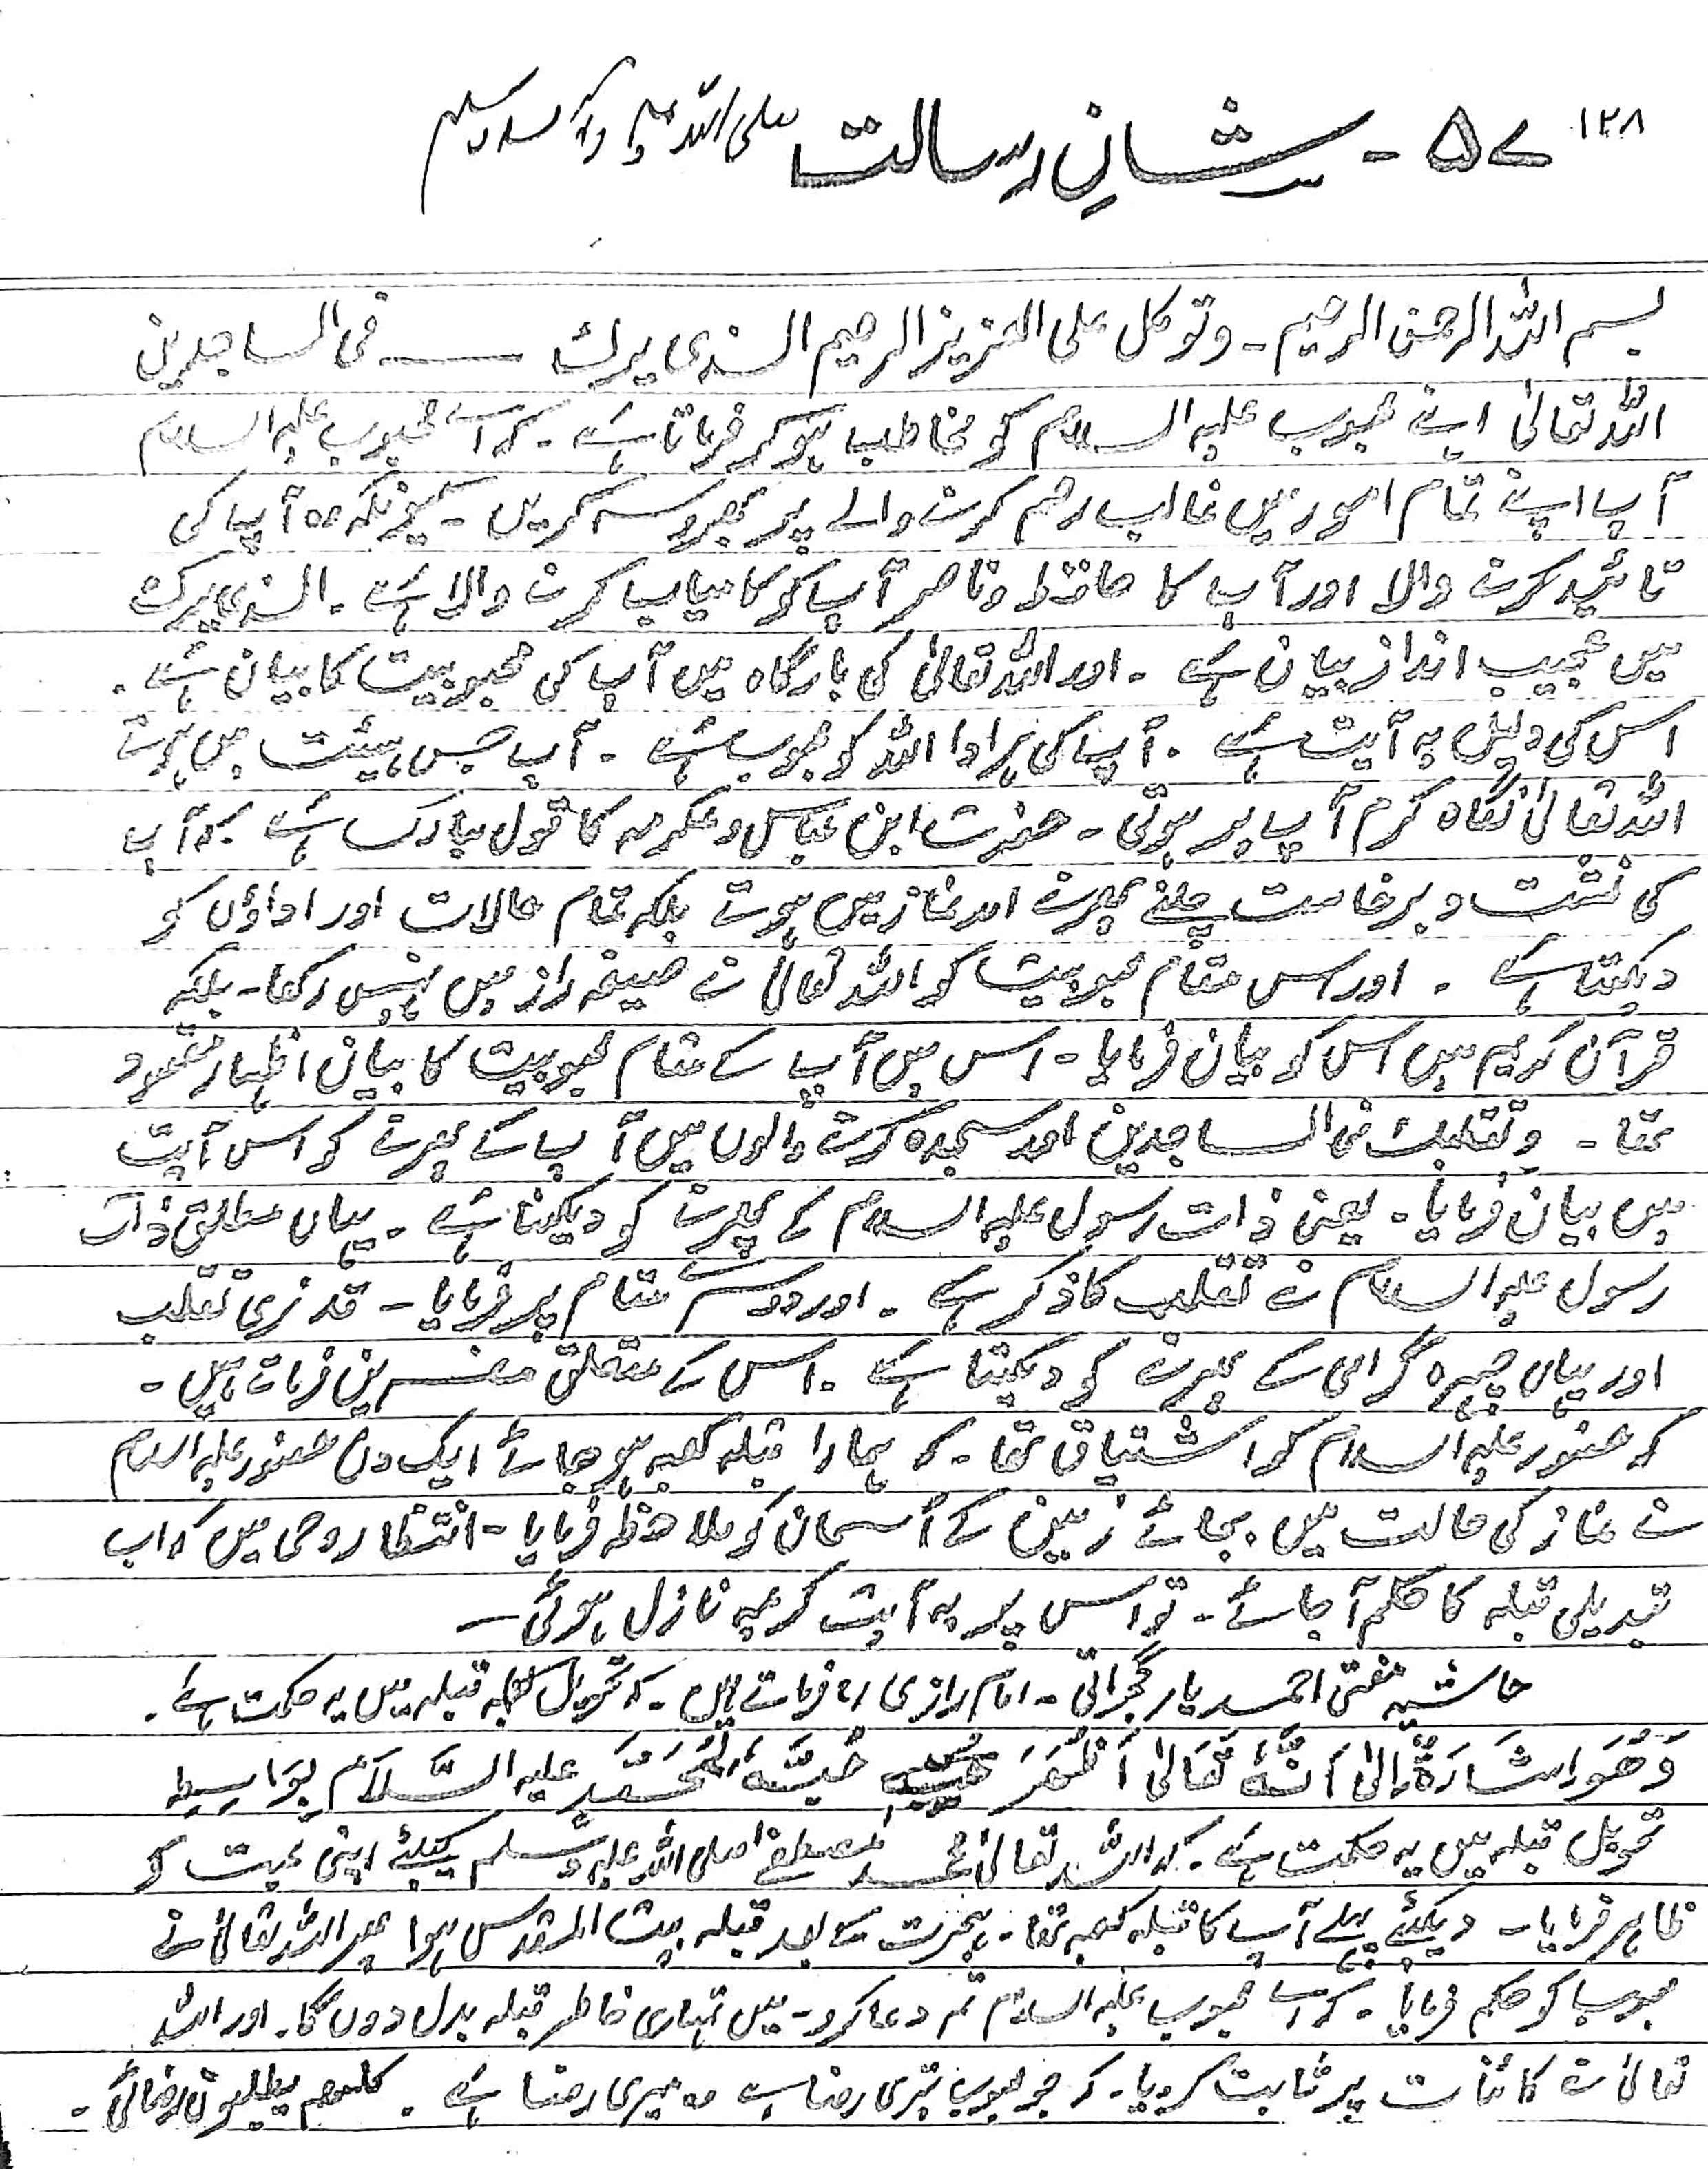 ۱۲۸
۵۷ - شانِ رسالت صلی اللہ علیہ وآلہ وسلم
بسم اللہ الرحمن الرحیم - وتوکل علی العزیز الرحیم الذی یرٰک ——— فی الساجدین
اللہ تعالیٰ اپنے محبوب علیہ السلام کو مخاطب ہو کر فرماتا ہے - کہ اے محبوب علیہ السلام
آپ اپنے تمام امور میں غالب رحم کرنے والے پر بھروسہ کریں - کیونکہ وہ آپ کی
تائید کرنے والا اور آپ کا حافظ و ناصر آپ کو کامیاب کرنے والا ہے - الذی یرٰک
میں عجیب انداز بیان ہے - اور اللہ تعالیٰ کی بارگاہ میں آپ کی محبوبیت کا بیان ہے -
اس کی دلیل یہ آیت ہے - آپ کی ہر ادا اللہ کو محبوب ہے - آپ جس ہیئت میں ہوتے
اللہ تعالیٰ نگاہ کرم آپ پر ہوتی - حضرت ابن عباس و عکرمہ کا قول مبارک ہے کہ آپ
کی نشت و برخاست چلنے پھرنے اور نماز میں ہوتے بلکہ تمام حالات اور اداؤں کو
دیکھتا ہے - اور اس مقام محبوبیت کو اللہ تعالیٰ نے صیغہ راز میں نہیں رکھا - بلکہ
قرآن کریم میں اس کو بیان فرمایا - اس میں آپ کے مقام محبوبیت کا بیان اظہار مقصود
تھا - وتقلبک فی الساجدین اور سجدہ کرنے والوں میں آپ کے پھرنے کو اس آیت
میں بیان فرمایا - یعنی ذات رسول علیہ السلام کے پھرنے کو دیکھتا ہے - یہاں مطلق ذات
رسول علیہ السلام نے تقلب کا ذکر ہے - اور دوسرے مقام پر فرمایا - قد نری تقلب
اور یہاں چہرہ گرامی کے پھرنے کو دیکھتا ہے - اس کے متعلق مفسرین فرماتے ہیں -
کہ حضور علیہ السلام کو اشتیاق تھا - کہ ہمارا قبلہ کعبہ ہو جائے ایک دن حضور علیہ السلام
نے نماز کی حالت میں بجائے زمین کے آسمان کو ملاحظہ فرمایا - انتظار وحی میں کہ اب
تبدیلی قبلہ کا حکم آ جائے - تو اس پر یہ آیت کریمہ نازل ہوئی —
حاشیہ مفتی احمد یار گجراتی - امام رازی رح فرماتے ہیں - کہ تحویل قبلہ میں یہ حکمت ہے -
وَھُوَ اِشَارَۃٌ اِلیٰ اَنَّہٗ تَعَالیٰ اَظْھَرَ حُبَّہٗ لِمُحَمَّدٍ علیہ السَّلَامُ بِوَاسِطِہ
تحویل قبلہ میں یہ حکمت ہے - کہ اللہ تعالیٰ محمد مصطفےٰ صلی اللہ علیہ وسلم کیلئے اپنی محبت کو
ظاہر فرمایا - دیکھئے پہلے آپ کا قبلہ کعبہ تھا - ہجرت کے بعد قبلہ بیت المقدس ہوا پھر اللہ تعالیٰ نے
محبوب کو حکم فرمایا - کہ اے محبوب علیہ السلام تم دعا کرو - میں تمہاری خاطر قبلہ بدل دوں گا - اور اللہ
تعالیٰ نے کائنات پر ثابت کر دیا - کہ جو محبوب تیری رضا ہے وہ میری رضا ہے - کلھم یطلبون رضائی -